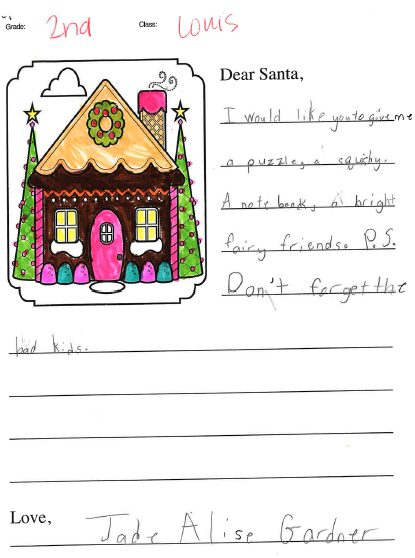 Grade: 2nd Class: Louis
Dear Santa,
I would like you to give me
a puzzle, a squishy.
A note book, a bright
fairy friends. P.S.
Don't forget the
bad kids.
Love, Jade Alise Gardner